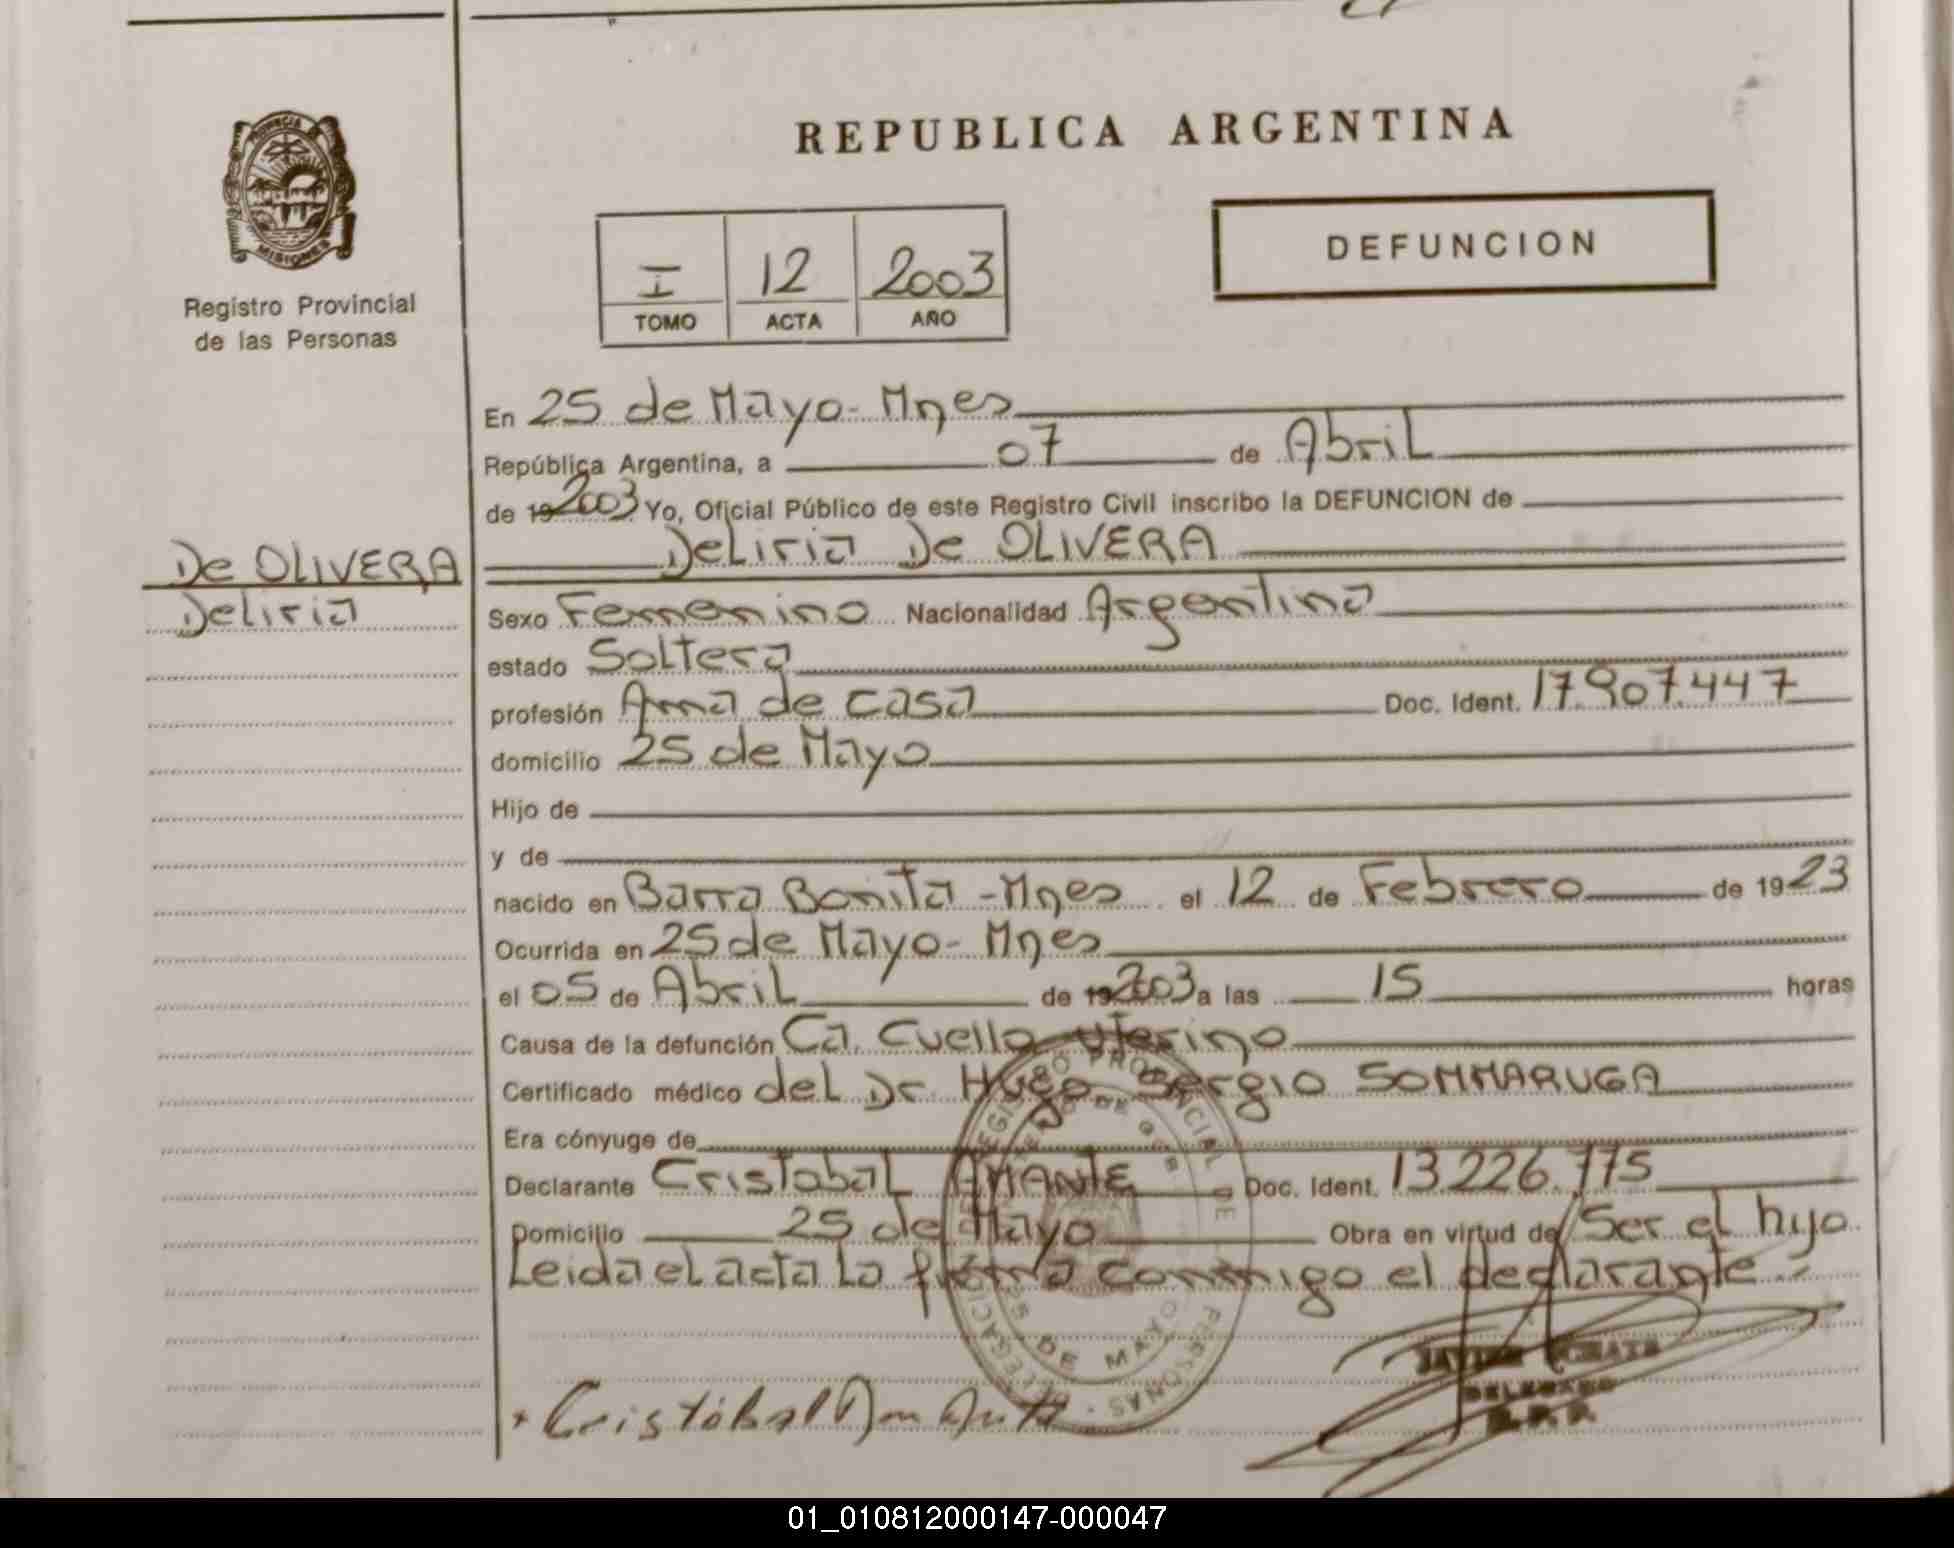 REPUBLICA ARGENTINA
PROVINCIA DE
MISIONES
Registro Provincial
de las Personas
DEFUNCION
I 12 2003
TOMO ACTA AÑO
De OLIVERA
Deliria
En 25 de Mayo - Mnes
República Argentina, a 07 de Abril
de 19 2003 Yo, Oficial Público de este Registro Civil inscribo la DEFUNCION de
Deliria De OLIVERA
Sexo Femenino Nacionalidad Argentina
estado Soltera
profesión Ama de casa Doc. Ident. 17.907.447
domicilio 25 de Mayo
Hijo de
y de
nacido en Barra Bonita - Mnes el 12 de Febrero de 1923
Ocurrida en 25 de Mayo - Mnes
el 05 de Abril de 19 2003 a las 15 horas
Causa de la defunción Ca. Cuello uterino
Certificado médico del Dr. Hugo Sergio SOMMARUGA
Era cónyuge de
Declarante Cristobal AMANTE Doc. Ident. 13.226.775
Domicilio 25 de Mayo Obra en virtud de Ser el hijo.
Leida el acta la firma conmigo el declarante.-
REGISTRO PROVINCIAL DE
PERSONAS
DELEGACION
25 DE MAYO
JAVIER
DELEGADO
R. P. P.
Cristóbal Amante
01_010812000147-000047